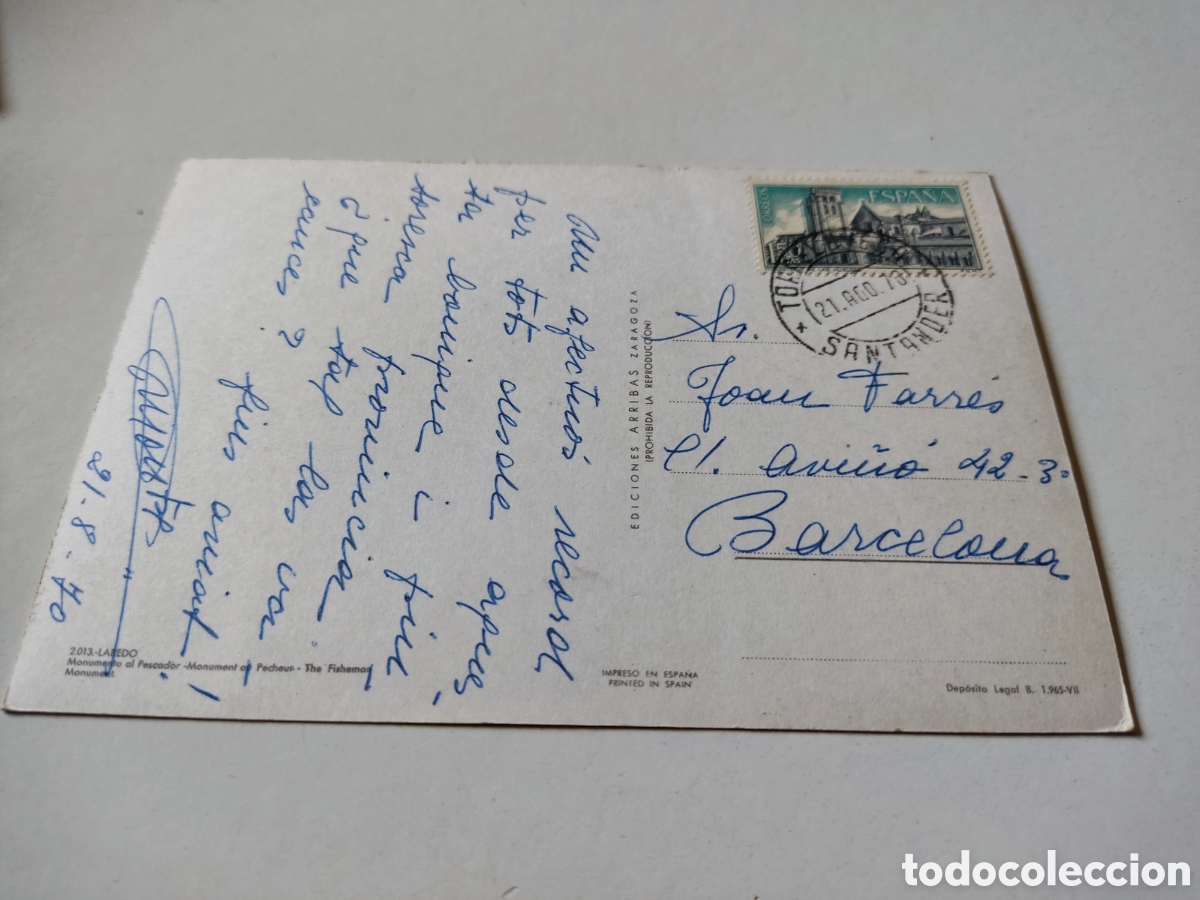 Un afectuós record
per tots desde aques-
ta bonique i pin-
toresca provincia.
Que tap las va-
cances?
fins aviat!
21-8-70
2.013.-LAREDO
Monumento al Pescador -Monument au Pecheur- The Fisheman
Monument.
EDICIONES ARRIBAS ZARAGOZA
(PROHIBIDA LA REPRODUCCION)
IMPRESO EN ESPAÑA
PRINTED IN SPAIN
CORREOS
ESPAÑA
21.AGO.70
SANTANDER
Sr.
Joan Farrés
C/. Aviñó 42-3º
Barcelona
Depósito Legal B. 1.965-VII
todocoleccion